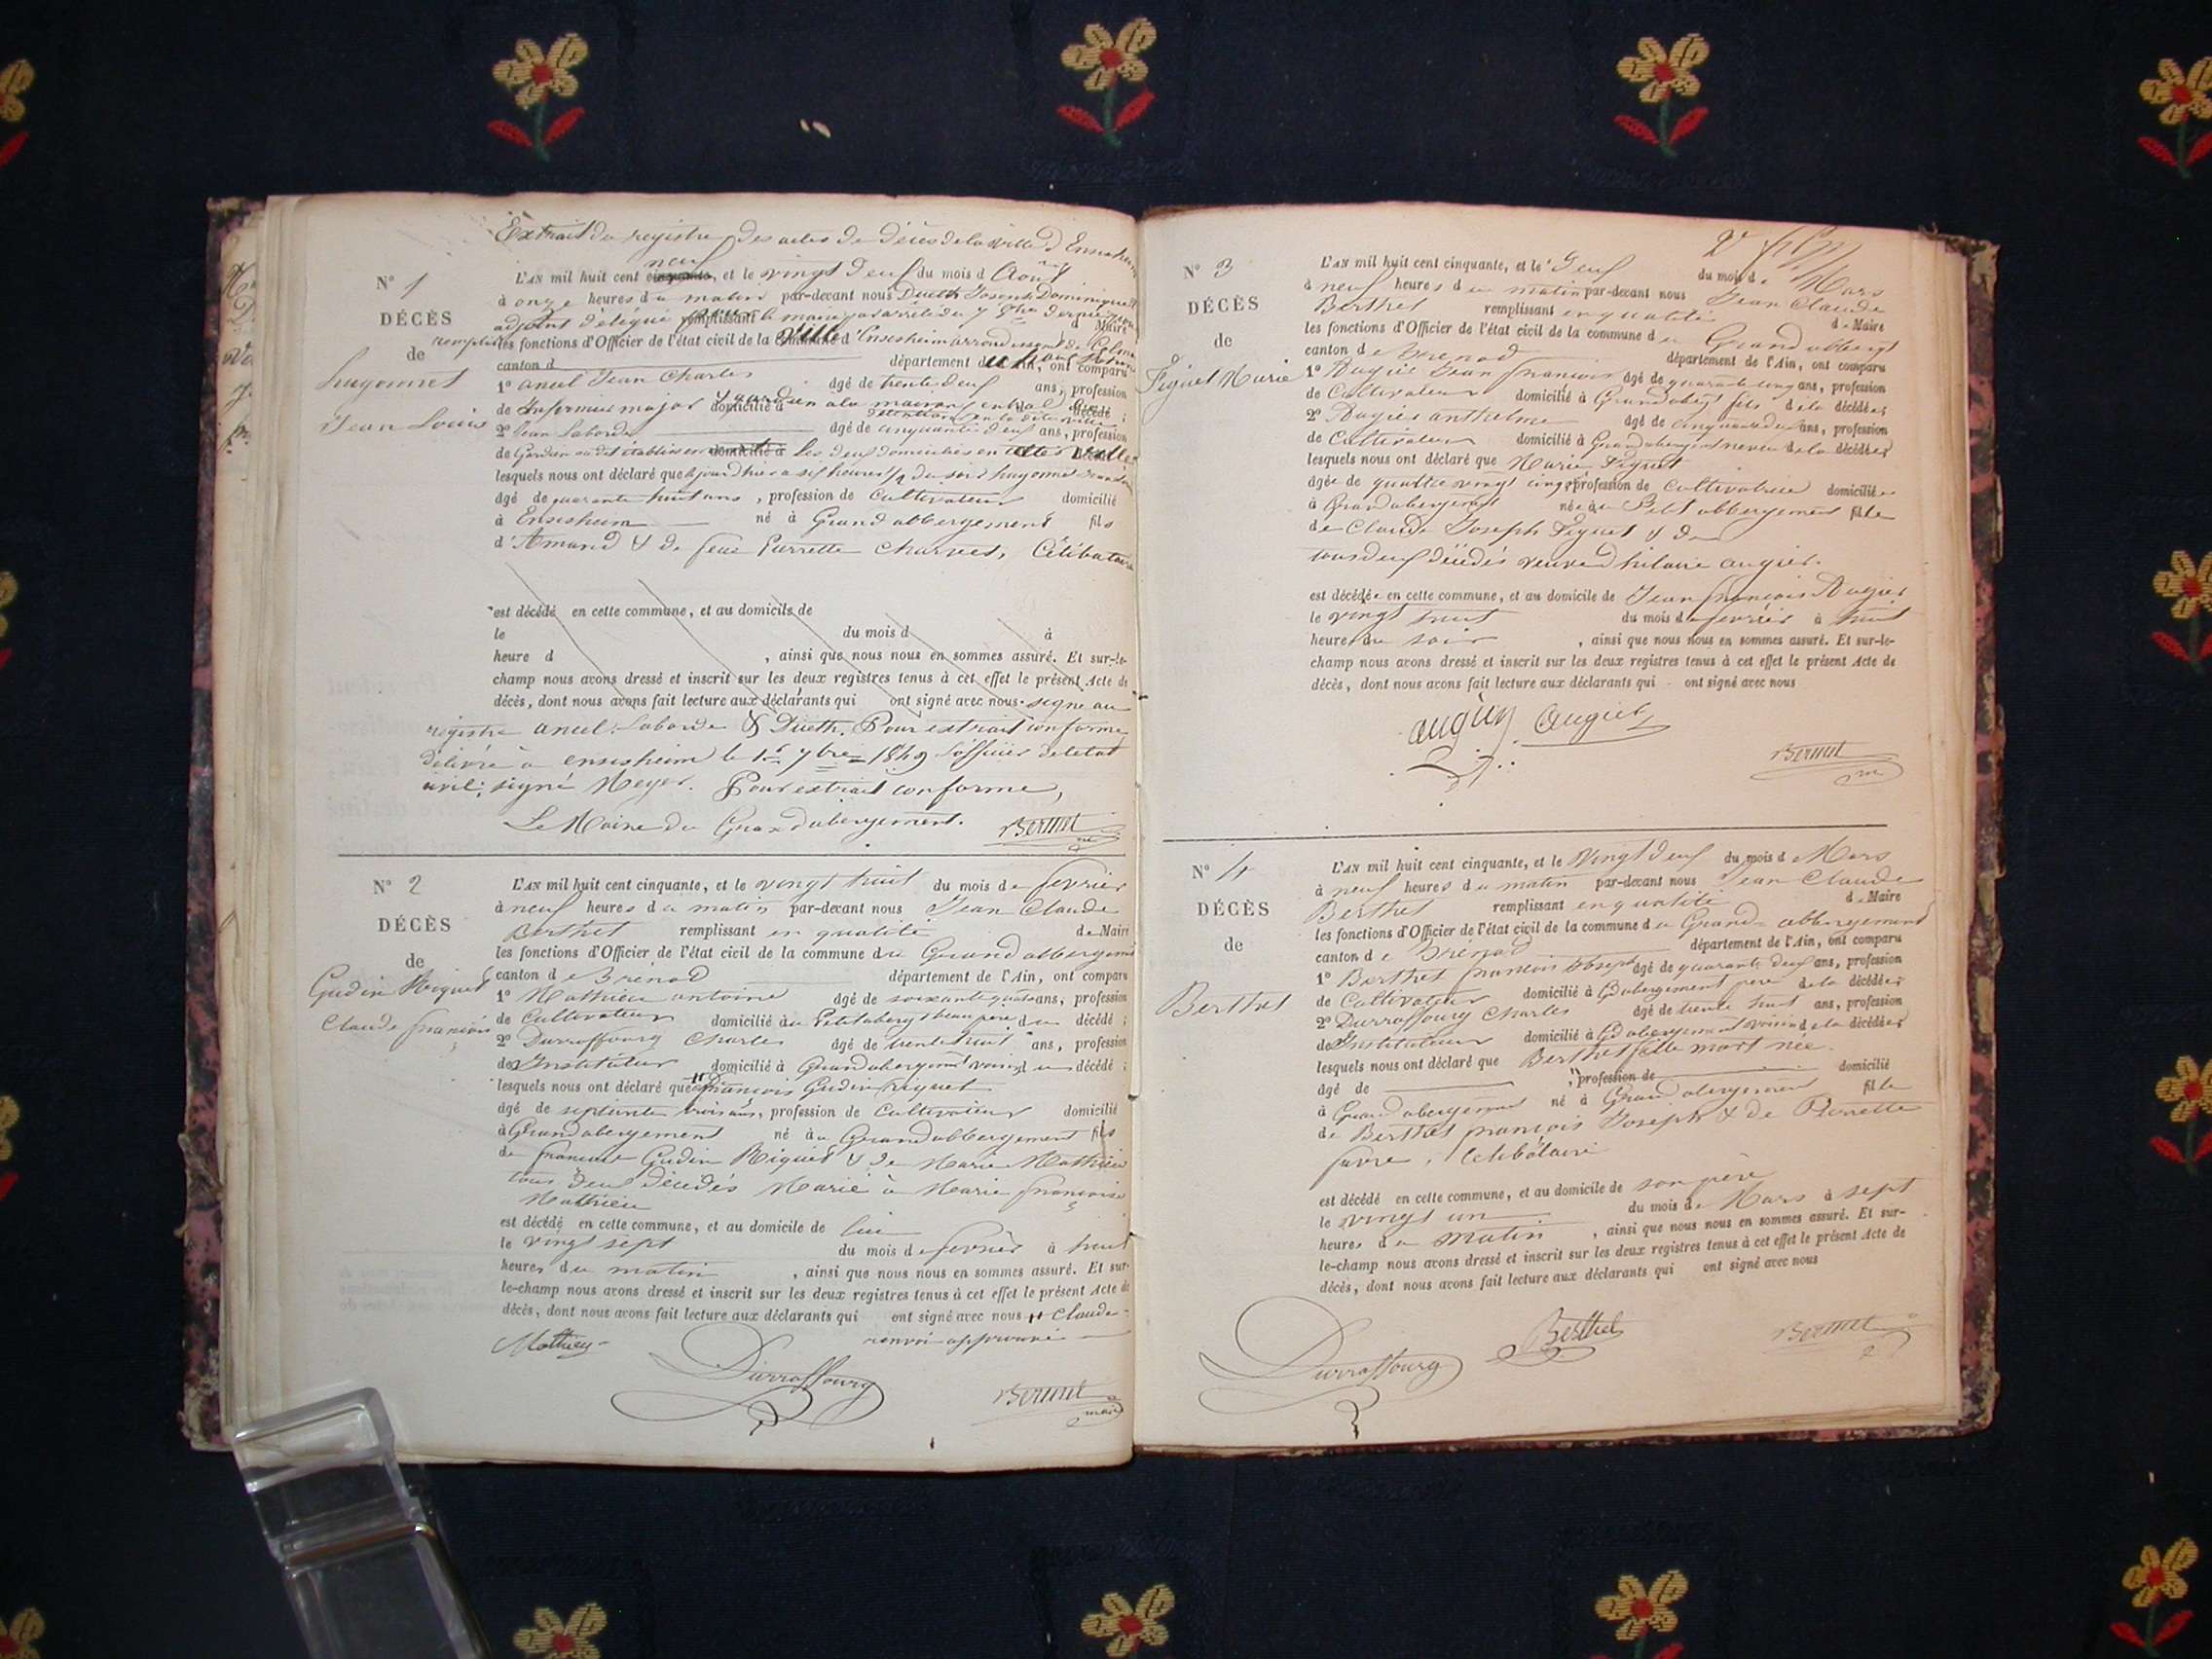 Extrait du registre des actes de décès de la ville d'Ensisheim
N° 1
DÉCÈS
de
hugonnet
Jean Louis
neuf
L'AN mil huit cent cinquante, et le vingt deux du mois d Aout
à onze heures du matin par-devant nous Dueth Joseph Dominique
adjoint délégué remplissant le maire par arrêté du 7 dernier
remplis les fonctions d'Officier de l'état civil de la ville d'Ensisheim arrondissement de Colmar
canton d département du haut Rhin, ont comparu
1° ancel Jean Charles âgé de trente deux ans, profession
de Infirmier major & gardien à la maison centrale de
détention en la dite ville
2° Jean Laborde âgé de cinquante deux ans, profession
de Gardien audit établissement domicilié à les deux domiciliés en cette ville
lesquels nous ont déclaré que le jour d'hier à six heures 1/2 du soir hugonnet Jean Louis
âgé de quarante huit ans, profession de cultivateur domicilié
à Ensisheim né à Grand abbergement fils
d'Amand & de feue Pierrette Charvet, Célibataire
est décédé en cette commune, et au domicile de
le du mois d à
heure d , ainsi que nous nous en sommes assuré. Et sur-le-
champ nous avons dressé et inscrit sur les deux registres tenus à cet effet le présent Acte de
décès, dont nous avons fait lecture aux déclarants qui ont signé avec nous. signé au
registre ancel, Laborde & Dueth. Pour extrait conforme
délivré à ensisheim le 1er 7bre 1849 l'officier de l'état
civil; signé Meyer. Pour extrait conforme,
Le Maire du Grand abergement. Berthet
me
N° 2
DÉCÈS
de
Gudin Riquet
Claude françois
L'AN mil huit cent cinquante, et le vingt huit du mois de fevrier
à neuf heures du matin par-devant nous Jean Claude
Berthet remplissant en qualité de Maire
les fonctions d'Officier de l'état civil de la commune du Grand abbergement
canton de Brénod département de l'Ain, ont comparu
1° Mathieu antoine âgé de soixante quatre ans, profession
de Cultivateur domicilié au Petit abergt beau pere du décédé ;
2° Durraffourg Charles âgé de trente huit ans, profession
de Instituteur domicilié à Grand abergemt voisin du décédé ;
lesquels nous ont déclaré que françois Gudin riquet
âgé de septante trois ans, profession de Cultivateur domicilié
à Grand abergement né au Grand abbergement fils
de françois Gudin Riquet & de Marie Mathieu
tous deux décédés Marié à Marie françoise
Mathieu
est décédé en cette commune, et au domicile de lui
le vingt sept du mois de fevrier à huit
heures du matin , ainsi que nous nous en sommes assuré. Et sur-
le-champ nous avons dressé et inscrit sur les deux registres tenus à cet effet le présent Acte de
décès, dont nous avons fait lecture aux déclarants qui ont signé avec nous H Claude
renvoi approuvé
Mathieu Durraffourg Berthet
maire
N° 3
DÉCÈS
de
Figuet Marie
L'AN mil huit cent cinquante, et le deux du mois de Mars
à neuf heures du matin par-devant nous Jean Claude
Berthet remplissant en qualité de Maire
les fonctions d'Officier de l'état civil de la commune du Grand abbergt
canton de Brenod département de l'Ain, ont comparu
1° Augier Jean françois âgé de quarante cinq ans, profession
de Cultivateur domicilié à Grand abergt fils de la décédée ;
2° Augier anthelme âgé de cinquante deux ans, profession
de Cultivateur domicilié à Grand abergement neveu de la décédée ;
lesquels nous ont déclaré que Marie Figuet
âgée de quatre vingt cinq, profession de Cultivatrice domiciliée
à Grand abergement née au Petit abbergement fille
de Claude Joseph Figuet & de
tous deux décédés veuve d'hilaire augier.
est décédée en cette commune, et au domicile de Jean françois Augier
le vingt huit du mois de fevrier à huit
heures du soir , ainsi que nous nous en sommes assuré. Et sur-le-
champ nous avons dressé et inscrit sur les deux registres tenus à cet effet le présent Acte de
décès, dont nous avons fait lecture aux déclarants qui ont signé avec nous
augier Berthet
me
N° 4
DÉCÈS
de
Berthet
L'AN mil huit cent cinquante, et le vingt deux du mois de Mars
à neuf heures du matin par-devant nous Jean Claude
Berthet remplissant en qualité de Maire
les fonctions d'Officier de l'état civil de la commune du Grand abbergement
canton de Brénod département de l'Ain, ont comparu
1° Berthet françois Joseph âgé de quarante deux ans, profession
de Cultivateur domicilié à Gd abergement pere de la décédée ;
2° Durraffourg Charles âgé de trente huit ans, profession
de Instituteur domicilié à Gd abergement voisin de la décédée
lesquels nous ont déclaré que Berthet fille mort née.
âgé de , profession de domicilié
à Grand abergement né à Grand abergement fille
de Berthet françois Joseph & de Pierrette
favre. Célibataire
est décédé en cette commune, et au domicile de son père
le vingt un du mois de Mars à sept
heures du matin , ainsi que nous nous en sommes assuré. Et sur-
le-champ nous avons dressé et inscrit sur les deux registres tenus à cet effet le présent Acte de
décès, dont nous avons fait lecture aux déclarants qui ont signé avec nous
Durraffourg Berthet Berthet